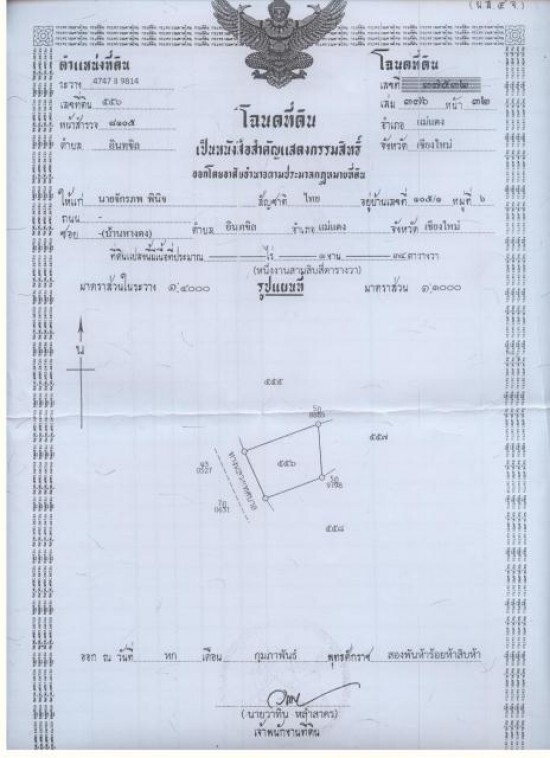 (น.ส.๔ จ)
ตำแหน่งที่ดิน
ระวาง 4747 II 9814
เลขที่ดิน ๕๕๖
หน้าสำรวจ ๘๑๐๕
ตำบล อินทขิล
โฉนดที่ดิน
เลขที่ ๓๗๕๓๒
เล่ม ๓๗๖ หน้า ๓๒
อำเภอ แม่แตง
จังหวัด เชียงใหม่
โฉนดที่ดิน
เป็นหนังสือสำคัญแสดงกรรมสิทธิ์
ออกโดยอาศัยอำนาจตามประมวลกฎหมายที่ดิน
ให้แก่ นายจักรภพ พินิจ สัญชาติ ไทย อยู่บ้านเลขที่ ๑๐๕/๑ หมู่ที่ ๖
ถนน -
ซอย -(บ้านทางดง) ตำบล อินทขิล อำเภอ แม่แตง จังหวัด เชียงใหม่
ที่ดินแปลงนี้มีเนื้อที่ประมาณ - ไร่ ๑ งาน ๓๔ ตารางวา
(หนึ่งงานสามสิบสี่ตารางวา)
มาตราส่วนในระวาง ๑:๔๐๐๐ รูปแผนที่ มาตราส่วน ๑:๑๐๐๐
น
๕๕๕
๕๕๗
๕๕๖
0527
0631
๕๕๘
ออก ณ วันที่ หก เดือน กุมภาพันธ์ พุทธศักราช สองพันห้าร้อยห้าสิบห้า
(นายวาทิน หล้าสาคร)
เจ้าพนักงานที่ดิน